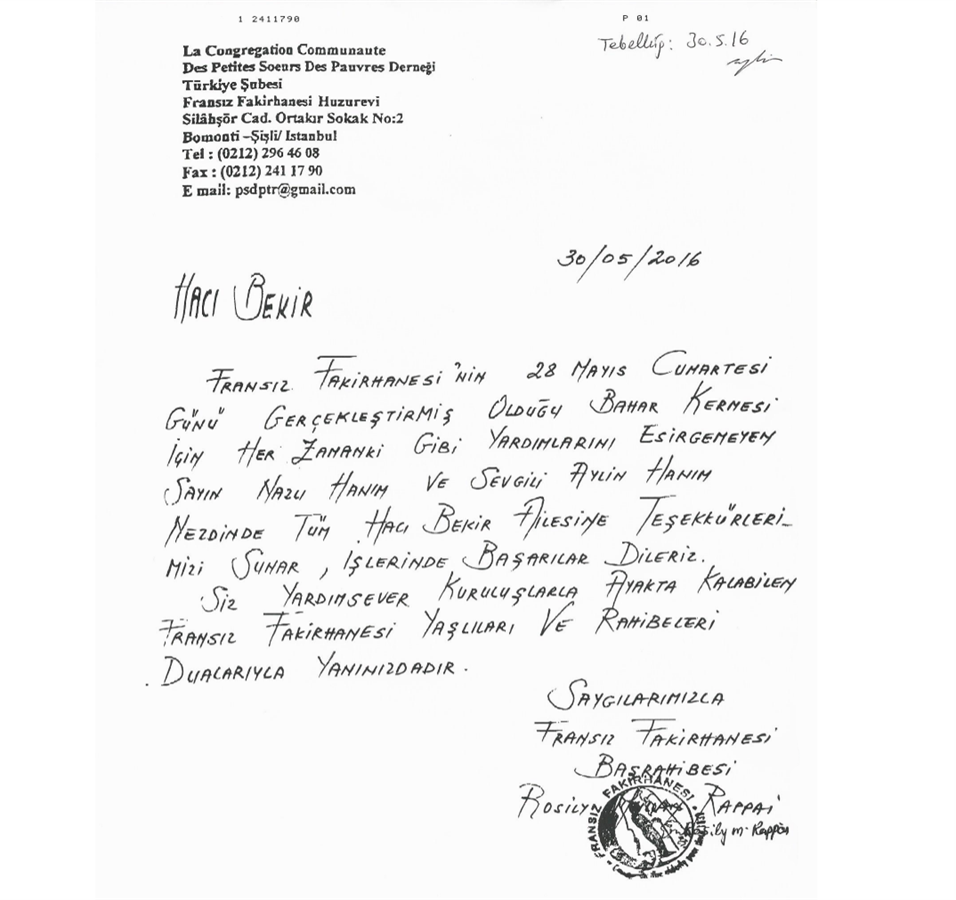 1 2411790 P 01
Tebellüğ: 30.5.16
La Congregation Communaute
Des Petites Soeurs Des Pauvres Derneği
Türkiye Şubesi
Fransız Fakirhanesi Huzurevi
Silâhşör Cad. Ortakır Sokak No:2
Bomonti –Şişli/ Istanbul
Tel : (0212) 296 46 08
Fax : (0212) 241 17 90
E mail: psdptr@gmail.com
30/05/2016
HACI BEKİR
FRANSIZ FAKİRHANESİ'NİN 28 MAYIS CUMARTESİ
GÜNÜ GERÇEKLEŞTİRMİŞ OLDUĞU BAHAR KERMESİ
İÇİN HER ZAMANKİ GİBİ YARDIMLARINI ESİRGEMEYEN
SAYIN NAZLI HANIM VE SEVGİLİ AYLİN HANIM
NEZDİNDE TÜM HACI BEKİR AİLESİNE TEŞEKKÜRLERİ_
MİZİ SUNAR , İŞLERİNDE BAŞARILAR DİLERİZ.
SİZ YARDIMSEVER KURULUŞLARLA AYAKTA KALABİLEN
FRANSIZ FAKİRHANESİ YAŞLILARI VE RAHİBELERİ
DUALARIYLA YANINIZDADIR.
SAYGILARIMIZLA
FRANSIZ FAKİRHANESİ
BAŞRAHİBESİ
ROSILYN RAPPAI
FRANSIZ FAKİRHANESİ